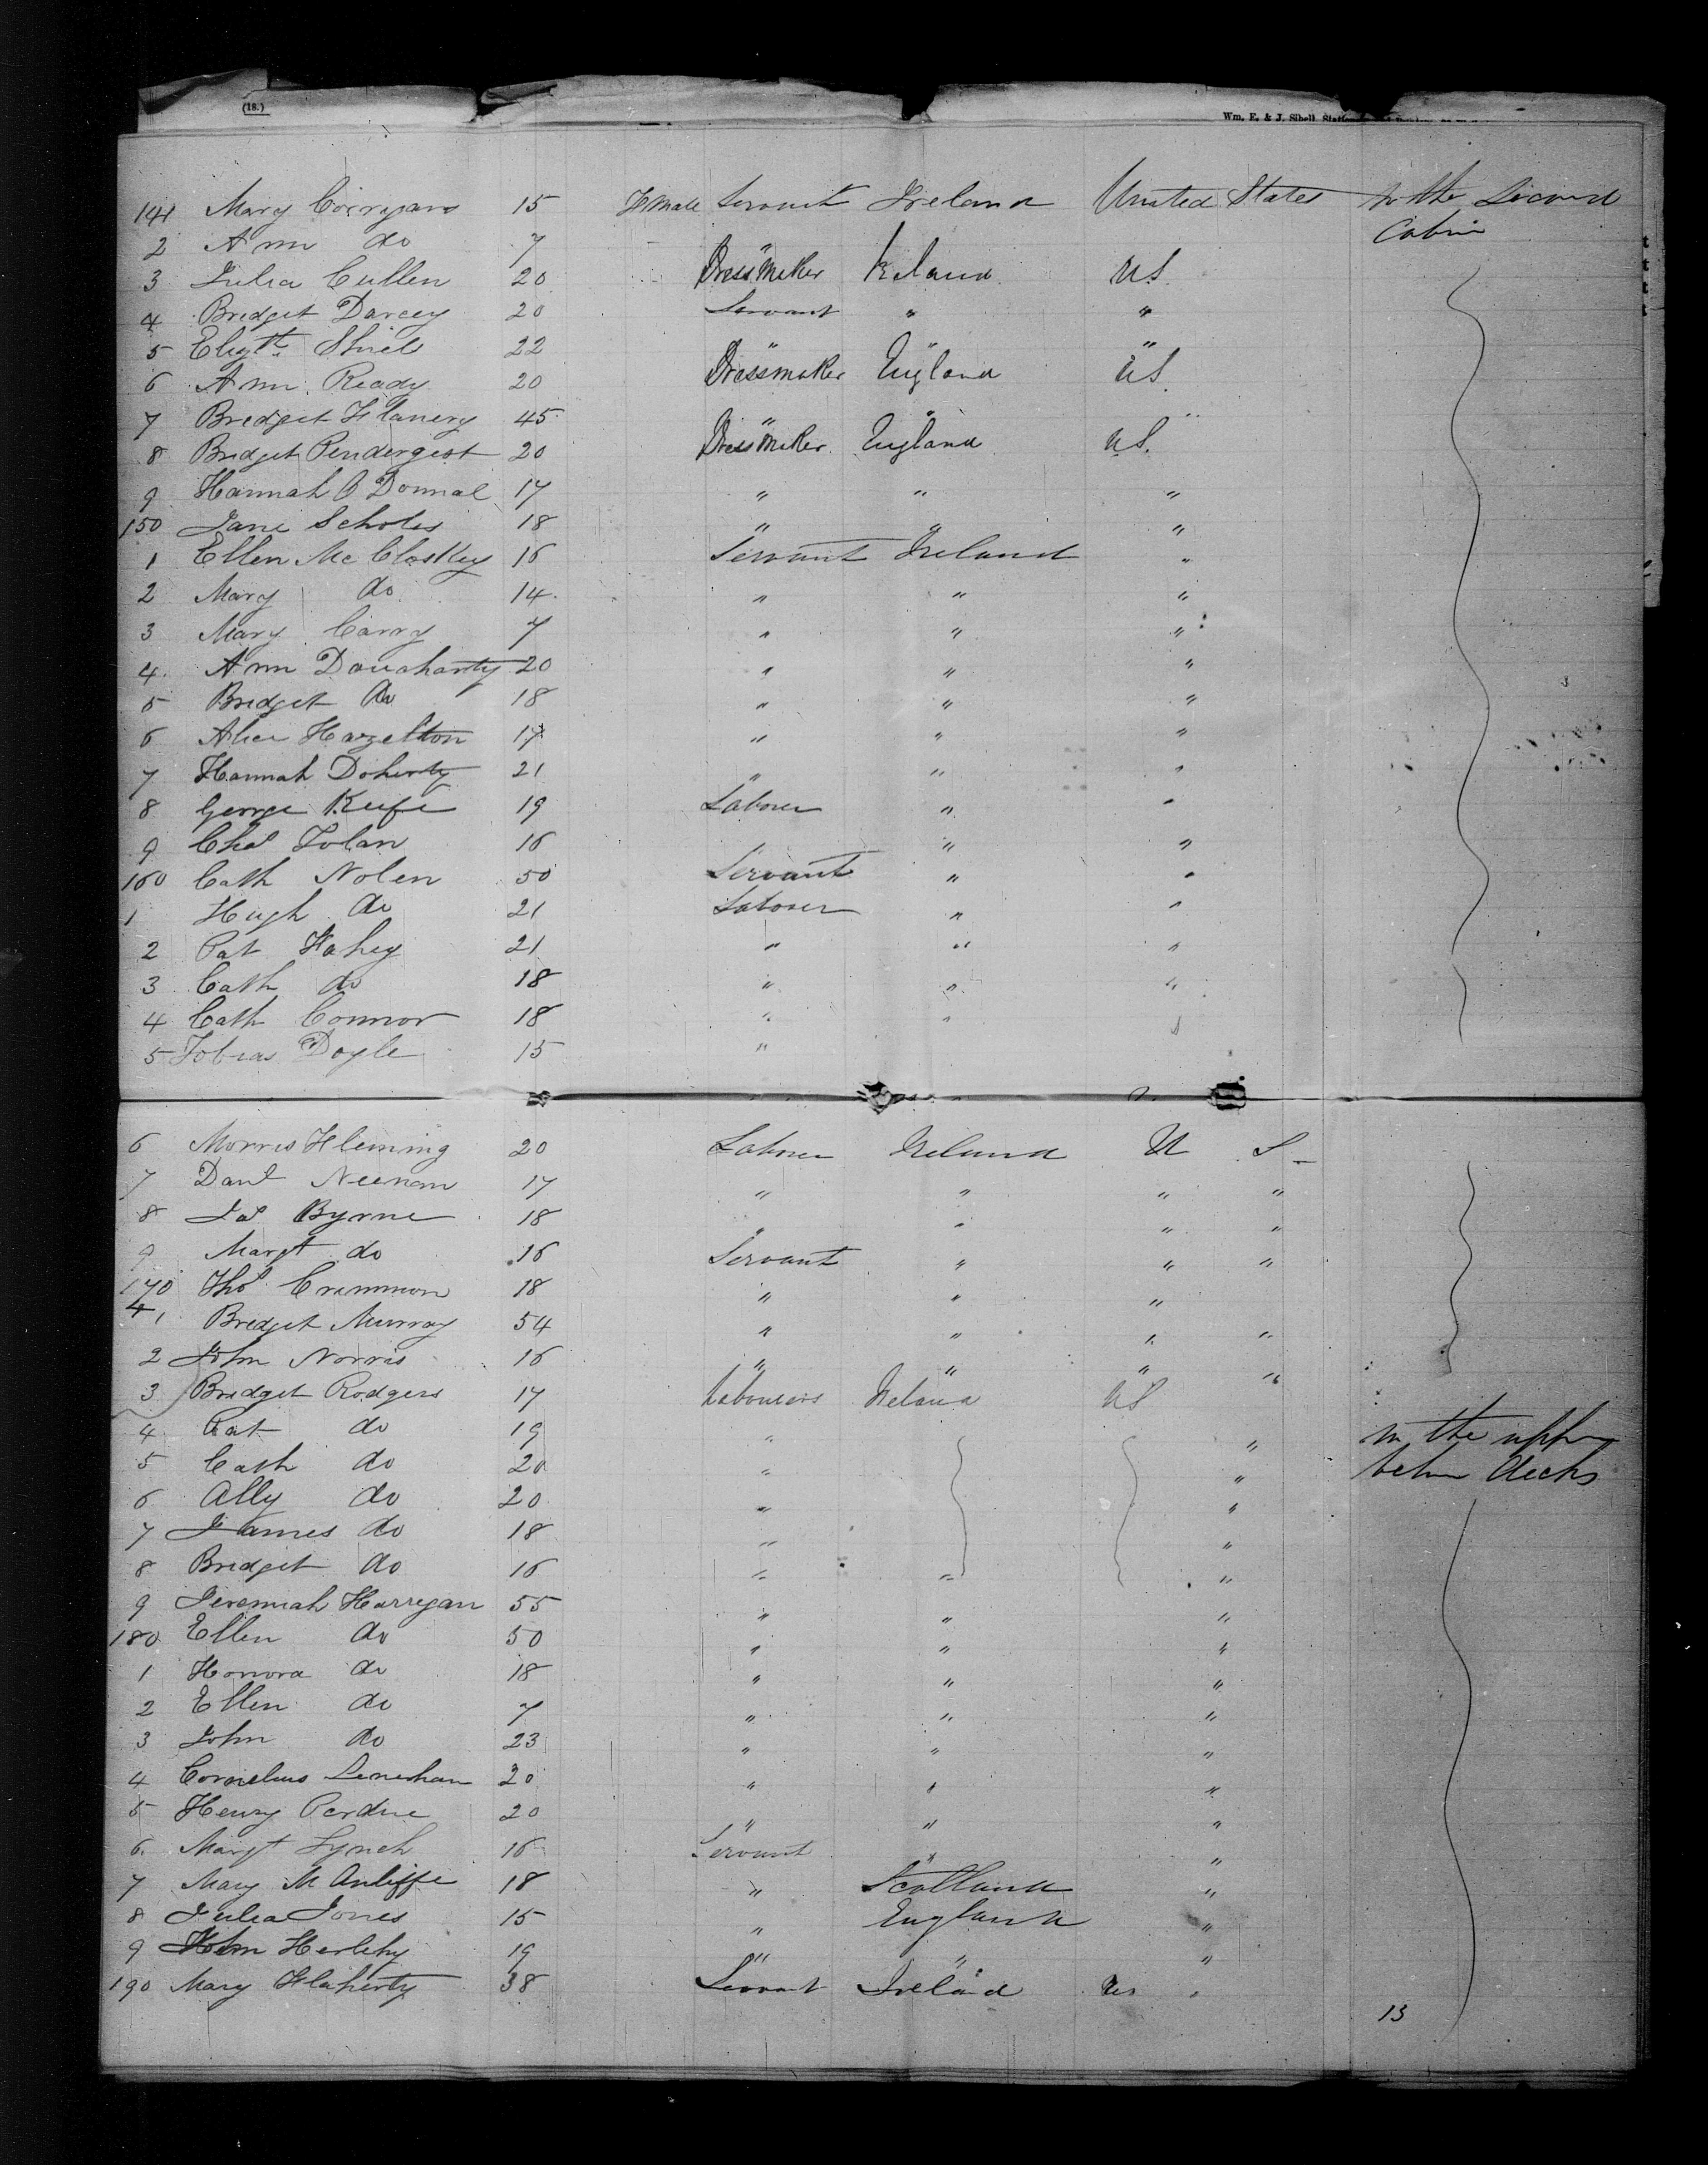 (18.)
Wm. E. & J. Sibell,
141 Mary Corrigan 15 Female Servant Ireland United States In the Second
2 Ann do 7 " Cabin
3 Julia Cullen 20 Dressmaker Ireland U.S.
4 Bridget Darcey 20 Servant " "
5 Elizth Shiels 22 " " "
6 Ann Ready 20 Dressmaker England U.S.
7 Bridget Flanery 45 " " "
8 Bridget Pendergest 20 Dressmaker England U.S.
9 Hannah O Donnal 17 " " "
150 Jane Scholes 18 " " "
1 Ellen Mc Closkey 16 Servant Ireland "
2 Mary do 14 " " "
3 Mary Carry 7 " " "
4 Ann Douahanty 20 " " "
5 Bridget do 18 " " "
6 Alice Hazelton 17 " " "
7 Hannah Doherty 21 " " "
8 George Keefe 19 Laborer " "
9 Chas Tolan 16 " "
160 Cath Nolen 50 Servant " "
1 Hugh do 21 Laborer " "
2 Pat Fahey 21 " " "
3 Cath do 18 " " "
4 Cath Connor 18 " " "
5 Tobias Doyle 15 "
6 Morris Fleming 20 Laborer Ireland U S
7 Danl Neenan 17 " " " "
8 Jas Byrne 18 " " " "
9 Margt do 16 Servant " " "
170 Thos Crimmion 18 " " "
1 Bridget Murray 54 " " " "
2 John Norris 16 " " " "
3 Bridget Rodgers 17 Labourers Ireland US
4 Pat do 19 " " In the upper
5 Cath do 20 " " betwn decks
6 Ally do 20 " "
7 James do 18 " "
8 Bridget do 16 " " "
9 Jeremiah Harrigan 55 " " "
180 Ellen do 50 " " "
1 Honora do 18 " " "
2 Ellen do 7 " " "
3 John do 23 " " "
4 Cornelius Lenehan 20 " " "
5 Henry Perdue 20 " " "
6 Margt Lynch 16 Servant " "
7 Mary M Auliffe 18 " Scotland "
8 Julia Jones 15 " England "
9 John Herlehy 19 " " "
190 Mary Flaherty 38 Servant Ireland US "
13